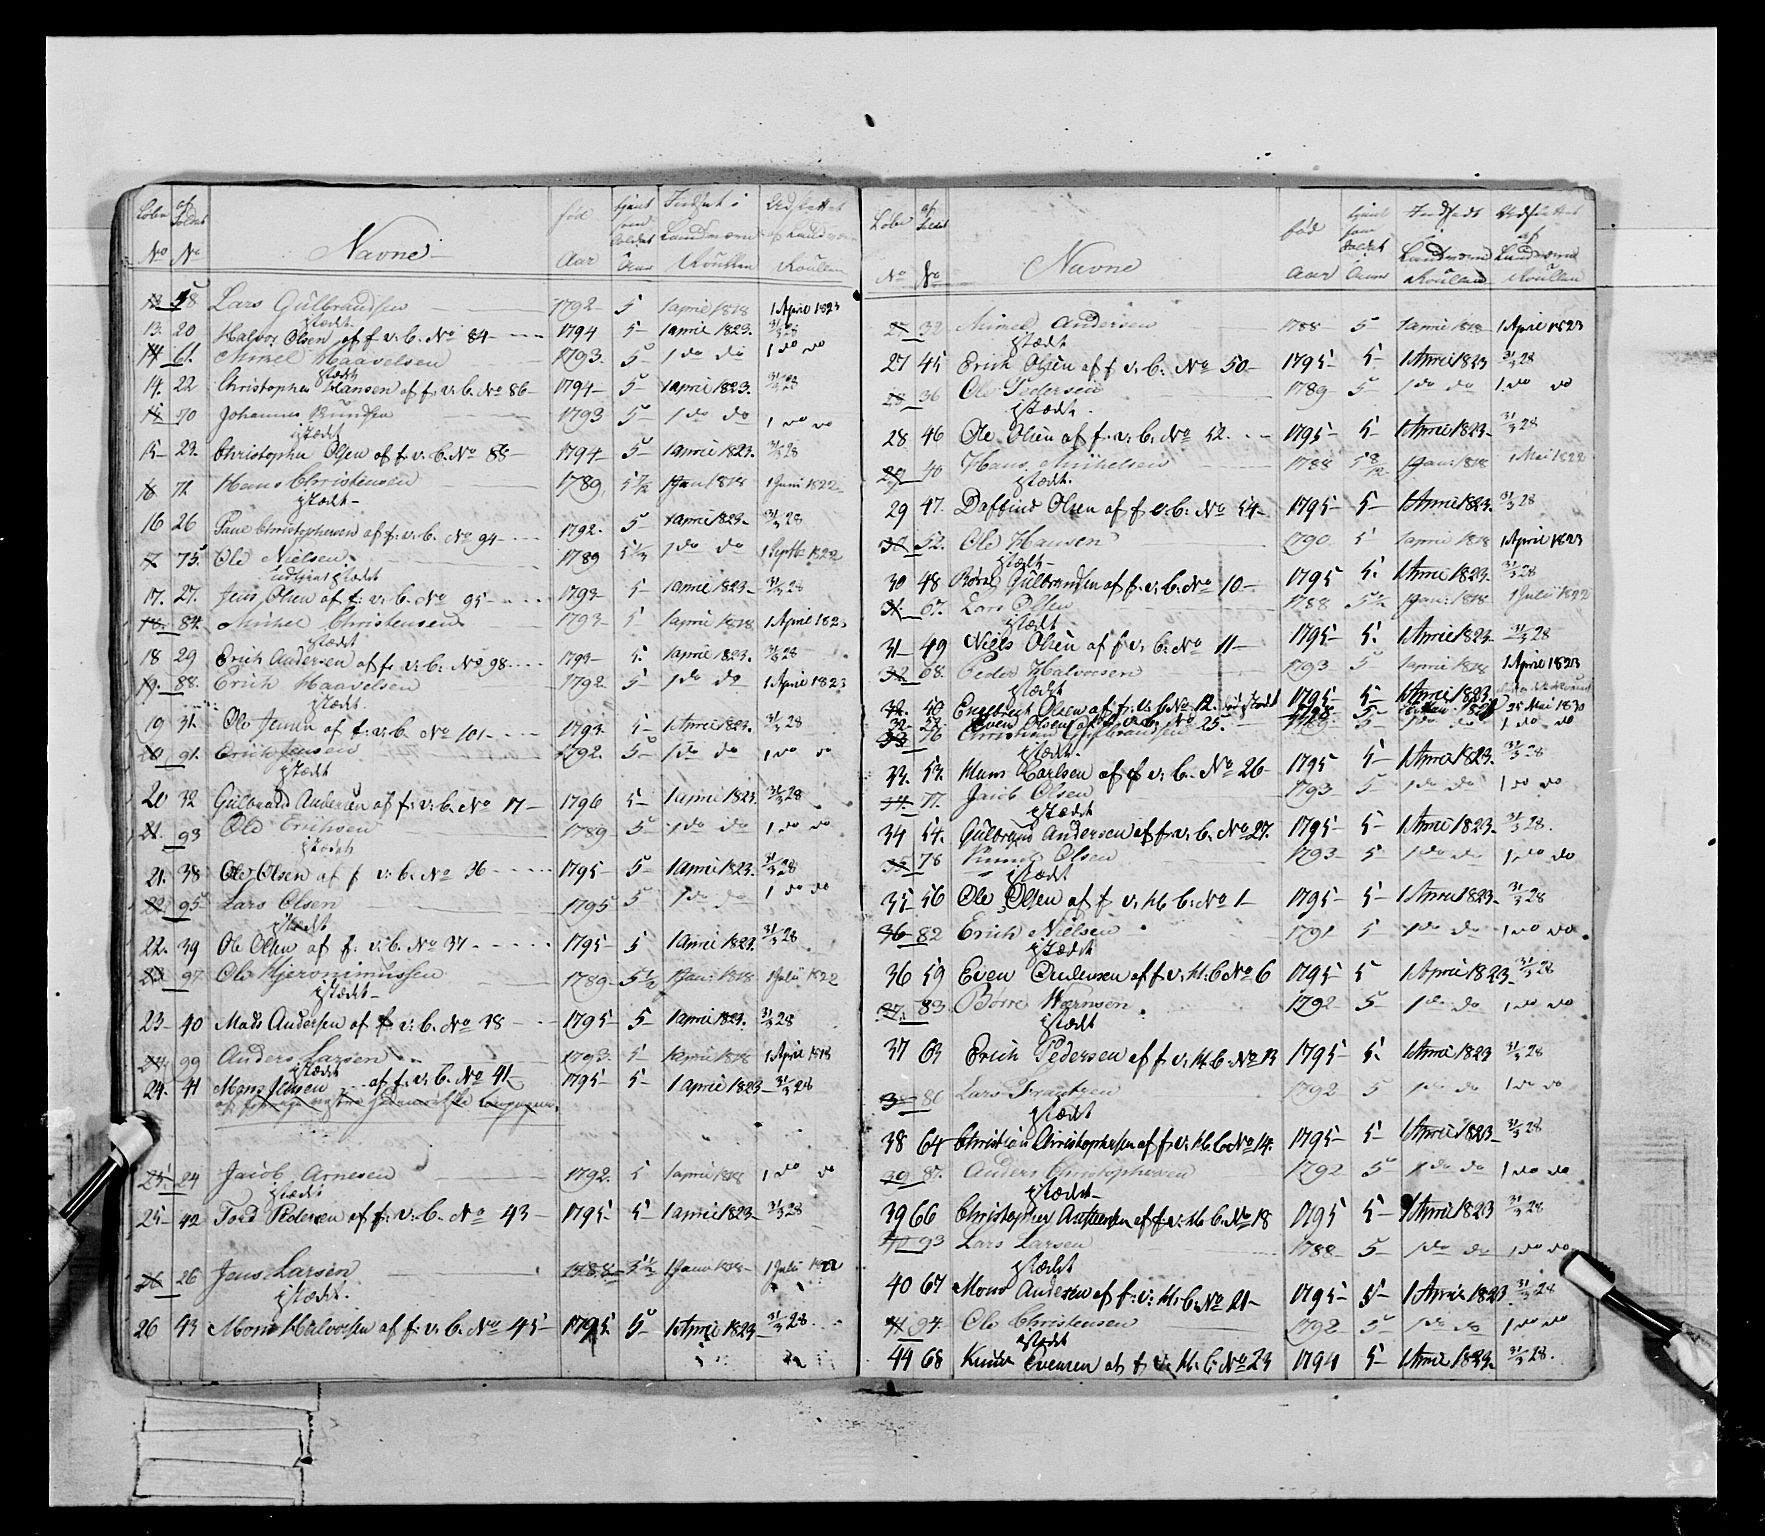 Løbe af Soldat Navne fød tjent som Soldat Indsat i Landværns Udslettet af Landværns
No No Aar Aar Roullen Roullen
13 58 Lars Gulbrandsen 1792 5 1 April 1818 1 April 1823
istædt
13. 20 Halvor Olsen af f. v. C. No 84 1794 5 1 April 1823. 31/3 28
14 61. Mickel Haavelsen 1793. 5 1 do do 1 do do
istædt
14. 22 Christopher Hansen af f. v. C. No 86 1794 5 1 April 1823. 31/3 28
15 70 Johannes 1793 5 1 do do 1 do do
istædt
15 23. Christopher Olsen af f. v. C. No 88 1794 5 1 April 1823. 31/3 28
16 71 Hans Christensen 1789. 5 1/2 1 Jan 1818 1 Juni 1822
istædt
16 26 Paul Christophersen af f. v. C. No 94 1792. 5 1 April 1823 31/3 28
17 75. Ole Nielsen 1789 1 do do 1 Septb 1822
istædt
17. 27. Jens Olsen af f. v. C. No 95 1793 5 1 April 1823 31/3 28
18. 84. Mickel Christensen 1793 5 1 April 1818 1 April 1823
istædt
18 29 Erich Andersen af f. v. C. No 98 1793 5. 1 April 1823. 31/3 28
19. 88. Erich Haavelsen 1792. 5 1 do do 1 April 1823
istædt.
19 31. Ole Jensen af f. v. C. No 101 1793. 5 1 April 1823. 31/3 28
20 91. Erich Jensen 1792. 5 1 do do 1 do do
istædt
20 32 Gulbrand Andersen af f. v. C. No 17 1796 5 1 April 1823. 31/3 28
21. 93 Ole Erichsen 1789 5 1 do do 1 do do
istædt
21. 38 Ole Olsen af f v. C. No 36 1795 5 1 April 1823. 31/3 28
22 95 Lars Olsen 1795 5 1 do do 1 do do
istædt
22. 39 Ole Olsen af f. v. C. No 37 1795 5 1 April 1823. 31/3 28
23 97 Ole Hjeronimussen 1789 5 1/2 1 Jan: 1818 1 Juli 1822
istædt
23 40 Mads Andersen af f v. C. No 38 1795 5 1 April 1823. 31/3 28
24. 99 Anders Larsen 1793. 5 1 April 1818 1 April 1818
istædt
24. 41 Mons Jensen af f. v. C. No 41 1795 5 1 April 1823 31/3 28
25. 24 Jacob Arnesen 1792. 5 1 April 1818 1 do do
istædt
25 42 Tord Pedersen af f. v. C. No 43 1795 5 1 April 1823 31/3 28
26 26 Jens Larsen 1788 5 1/2 1 Jan 1818 1 Juli 1822
istædt.
26 43 Mons Halvorsen af f. v. C. No 45 1795. 5 1 April 1823 31/3 28
Løbe af Soldat Navne fød tjent som Soldat Indsat i Landværns Udslettet af Landværns
No No Aar Aar Roullen Roullen
27 32 Mickel Andersen 1788 5 1 April 1818 1 April 1823
istædt
27 45 Erich Olsen af f v. C. No 50 1795 5 1 April 1823 31/3 28
28 36 Ole Pedersen 1789 5 1 do do 1 do do
istædt.
28 46 Ole Olsen af f. v. C. No 52. 1795 5 1 April 1823 31/3 28
29 40 Hans Mickelsen 1788 5 8/12 1 Jan: 1818 1 Mai 1822
istædt.
29 47. Daffind Olsen af f v. C. No 54 1795 5 1 April 1823. 31/3 28
30 52. Ole Hansen 1790 5 1 April 1818 1 April 1823
istædt
30 48 Gulbrandsen af f. v. C. No 10 1795 5. 1 April 1823. 31/3 28
31. 67. Lars Olsen 1788 5 1/2 1 Jan: 1818 1 Julii 1822
istædt
31 49 Niels Olsen af f v. C. No 11 1795 5. 1 April 1823 31/3 28
32 68. Peder Halvorsen 1793 5 1 April 1818 1 April 1823
istædt
32. 50 Engebret Olsen af f. v. C. No 12. 1795 5 1 April 1823
32. 52. Even Olsen af f. v. C. No 25. 5 25 Mai 1830
33 76 Christian Gulbrandsen 5 1 do do 1 do do
istædt.
33. 53. Hans Carlsen af f v. C. No 26 1795 5 1 April 1823. 31/3 28
34. 77. Jacob Olsen 1793 5 1 do do 1 do do
istædt
34 54. Gulbrand Andersen af f. v. C. No 27. 1795 5 1 April 1823. 31/3 28.
35 78 Olsen 1793 5 1 do do 1 do do
istædt
35 56 Ole Olsen af f v. M. C. No 1 1795 5 1 April 1823 31/3 28
36 82 Erich Nielsen 1791 5 1 do do 1 do do.
istædt
36 59 Even af f v. M. C No 6 1795 5 1 April 1823 31/3 28
37. 83 Børre 1792 5 1 do do 1 do do
istædt
37 63 Erich Pedersen af f v. M. C. No 13 1795 5. 1 April 1823 31/3 28
38 86 Lars Frantzen 1792 5 1 do do 1 do do
istædt
38 64 Christian Christophersen af f. v. M. C. No 14. 1795 5 1 April 1823 31/3 28
39 87. Anders Christophersen 1792 5 1 do do 1 do do
istædt
39 66 Christopher Andersen af f v. M. C. No 18 1795 5 1 April 1823 31/3 28
40 93 Lars Larsen 1788 5 1 do do 1 do do
istædt
40 67 Mons Andersen af f. v. M. C. No 21 1795 5 1 April 1823. 31/3 28
41 94. Ole Christensen 1792 5 1 do do 1 do do
istædt
44 68 Knud Evensen af f. v. M. C. No 23 1794 5 1 April 1823. 31/3 28.